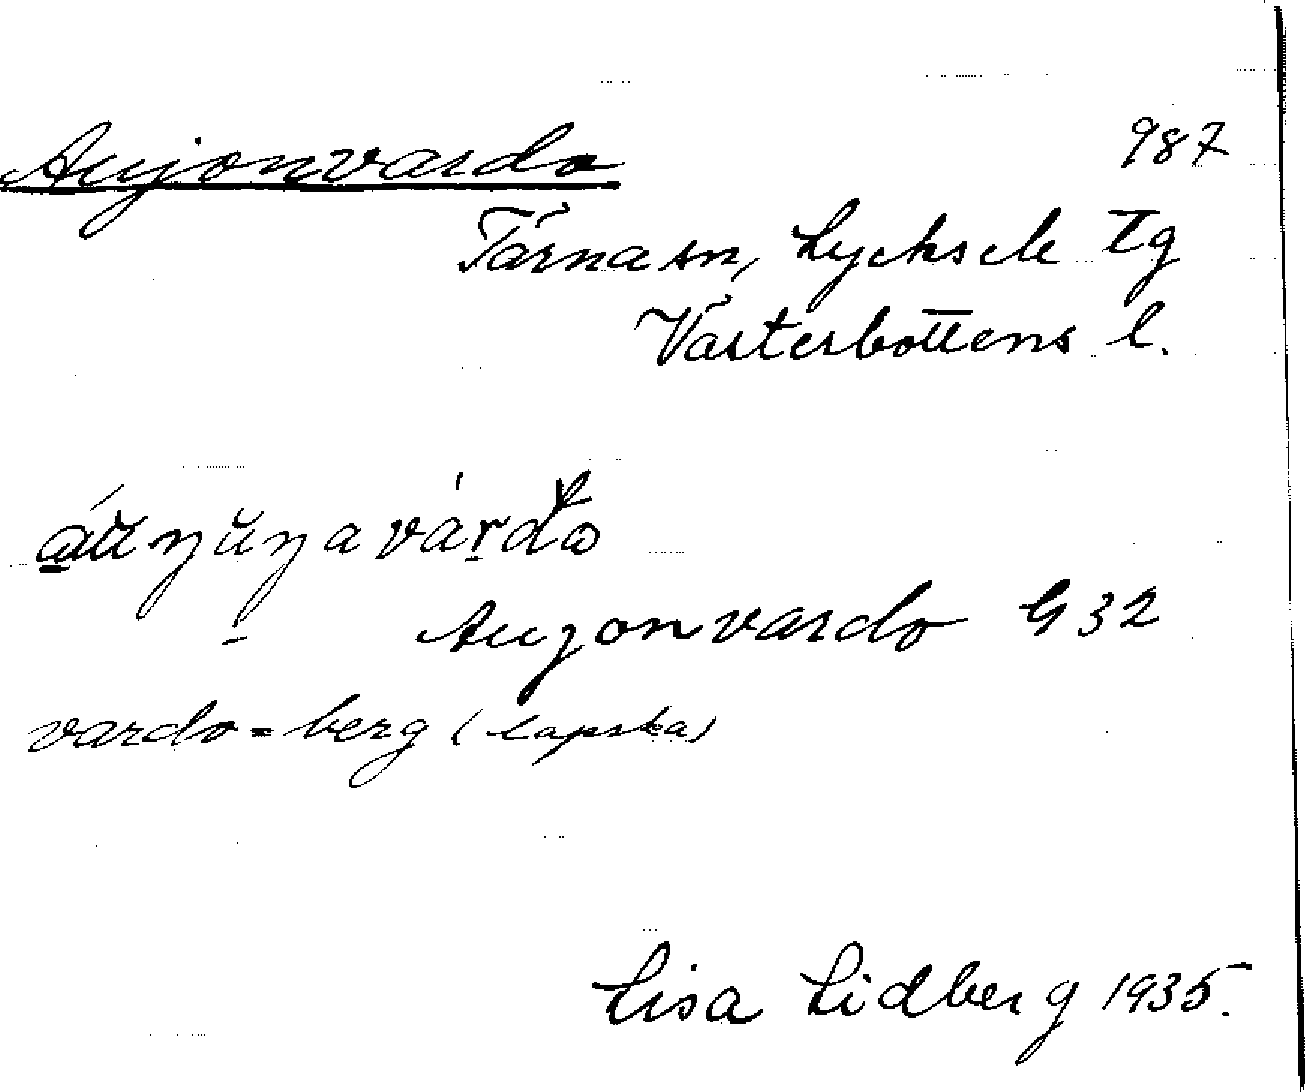 Aujonvardo 987
Tärna sn, Lycksele Tg
Västerbottens l.
áŭŋŭŋavárdo
Aujonvardo G 32
vardo = berg (lapska)
Lisa Lidberg 1935.